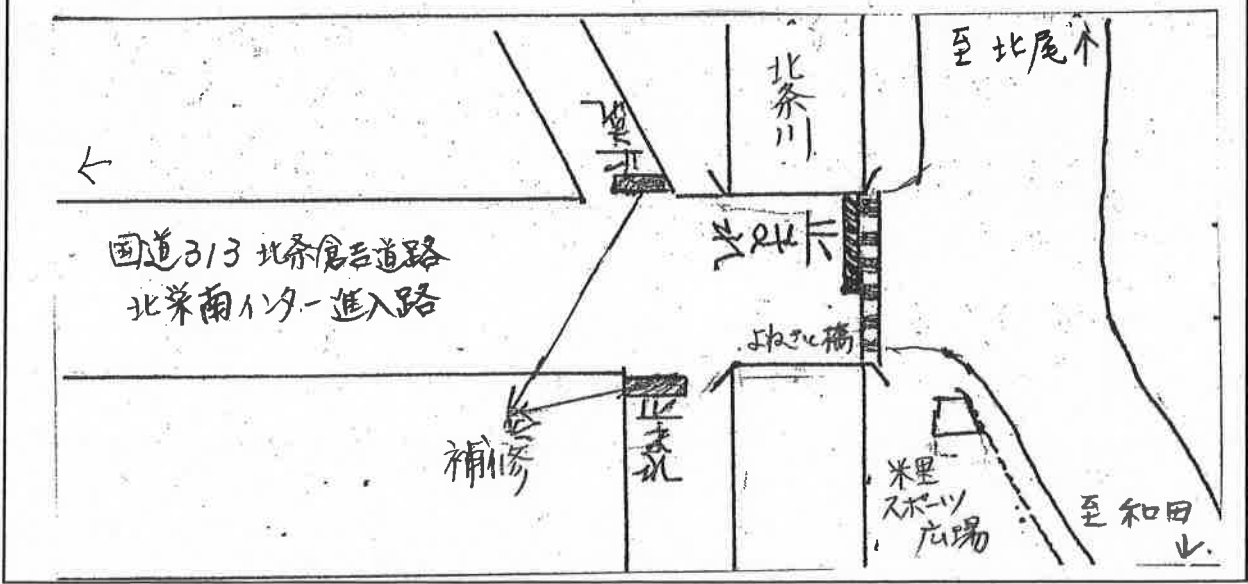 至 北尾 ↑
北条川
止まれ
←
止まれ
国道313 北条倉吉道路
北栄南インター進入路
よねさと橋
止まれ
補修
米里
スポーツ
広場
至 和田
↓